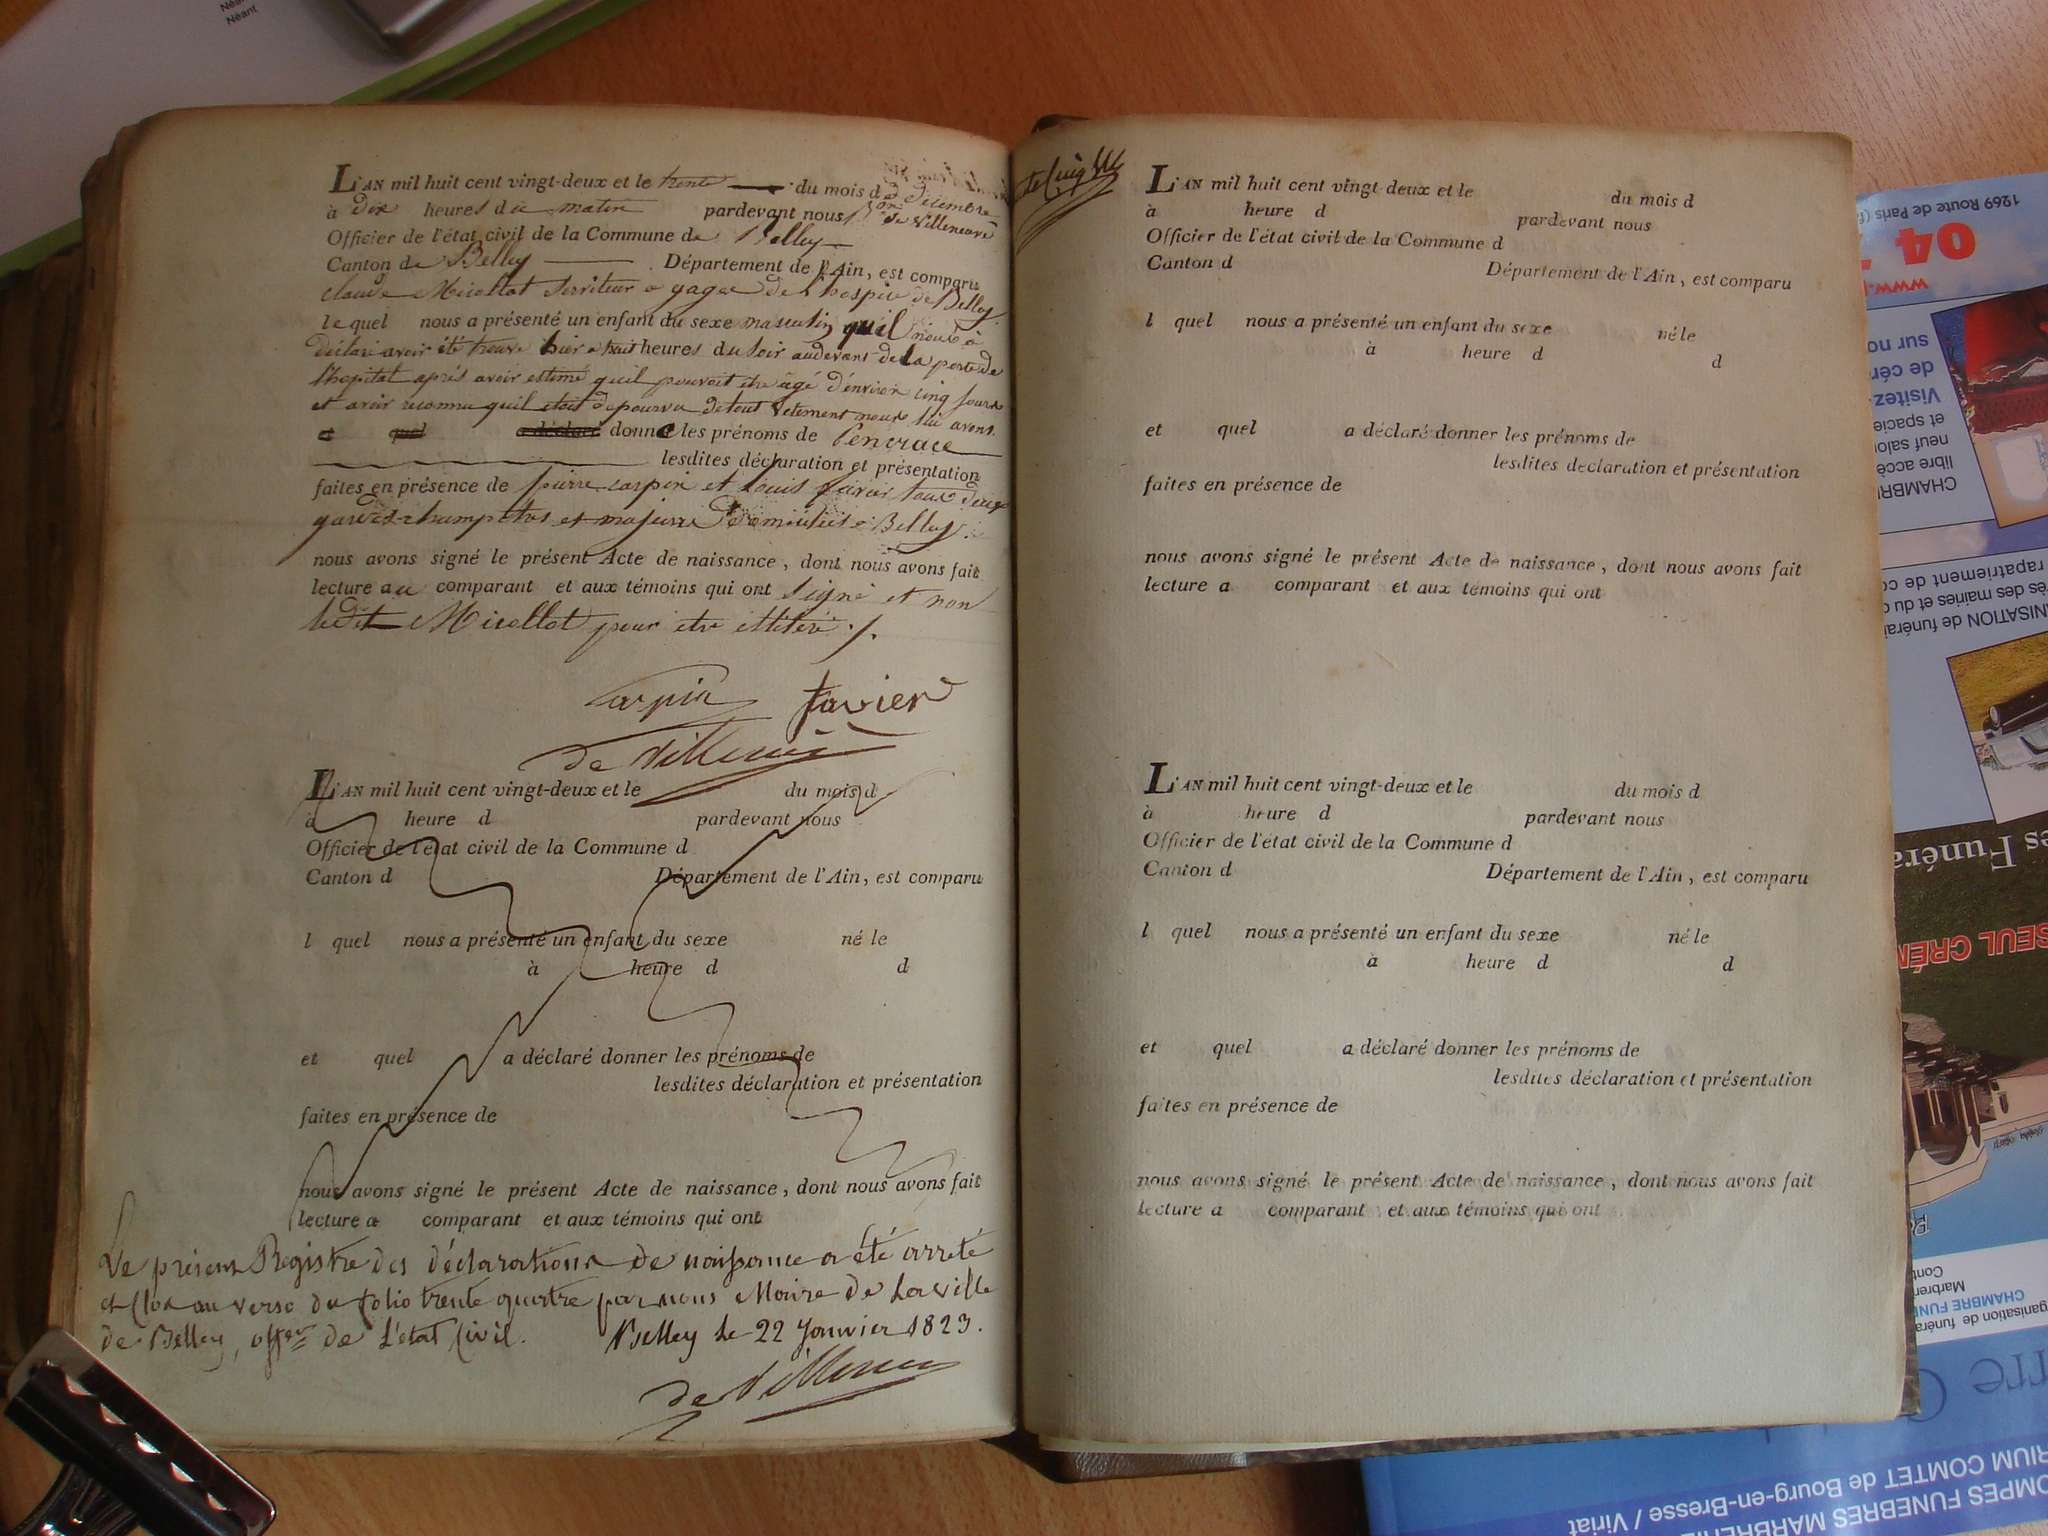 Néant
Néant
L'AN mil huit cent vingt-deux et le trente du mois de décembre
à dix heures du matin pardevant nous Bon de Villeneuve
Officier de l'état civil de la Commune de Belley
Canton de Belley Département de l'Ain, est comparu
claude Micollot Serviteur a gages de l'hospice de Belley
le quel nous a présenté un enfant du sexe masculin qu'il nous a
déclaré avoir été trouvé hier a huit heures du soir audevant de la porte de
l'hopital après avoir estimé qu'il pouvoit etre âgé d'environ cinq jours
et avoir reconnu qu'il etoit depourvu de tout vetement nous lui avons
et quel a déclaré donné les prénoms de Pencrace
lesdites déclaration et présentation
faites en présence de pierre carpin et Louis favier tous deux
gardes-champetres et majeurs domiciliés a Belley.
nous avons signé le présent Acte de naissance, dont nous avons fait
lecture au comparant et aux témoins qui ont signé et non
ledit Micollot pour etre illiteré ./.
Carpin favier
de Villeneuve
L'AN mil huit cent vingt-deux et le du mois d
à heure d pardevant nous
Officier de l'état civil de la Commune d
Canton d Département de l'Ain, est comparu
l quel nous a présenté un enfant du sexe né le
à heure d d
et quel a déclaré donner les prénoms de
lesdites déclaration et présentation
faites en présence de
nous avons signé le présent Acte de naissance, dont nous avons fait
lecture a comparant et aux témoins qui ont
Le présent Registre des déclarations de naissance a été arreté
et Clos au verso du folio trente quatre par nous Maire de la ville
de Belley, offer de l'état Civil. Belley le 22 Janvier 1823.
de Villeneuve
L'AN mil huit cent vingt-deux et le du mois d
à heure d pardevant nous
Officier de l'état civil de la Commune d
Canton d Département de l'Ain, est comparu
l quel nous a présenté un enfant du sexe né le
à heure d d
et quel a déclaré donner les prénoms de
lesdites déclaration et présentation
faites en présence de
nous avons signé le présent Acte de naissance, dont nous avons fait
lecture a comparant et aux témoins qui ont
L'AN mil huit cent vingt-deux et le du mois d
à heure d pardevant nous
Officier de l'état civil de la Commune d
Canton d Département de l'Ain, est comparu
l quel nous a présenté un enfant du sexe né le
à heure d d
et quel a déclaré donner les prénoms de
lesdites déclaration et présentation
faites en présence de
nous avons signé le présent Acte de naissance, dont nous avons fait
lecture a comparant et aux témoins qui ont
1269 Route de Paris
04
www.
Visitez-
sur no
de cér
et spacie
neuf salo
libre accè
CHAMBR
rapatriement de co
rès des mairies et du c
NISATION de funérai
es Funéra
SEUL CRÉM
ganisation de funéra
CHAMBRE FUN
Marbrer
Cont
OMPES FUNEBRES MARBRE
RIUM COMTET de Bourg-en-Bresse / Viriat